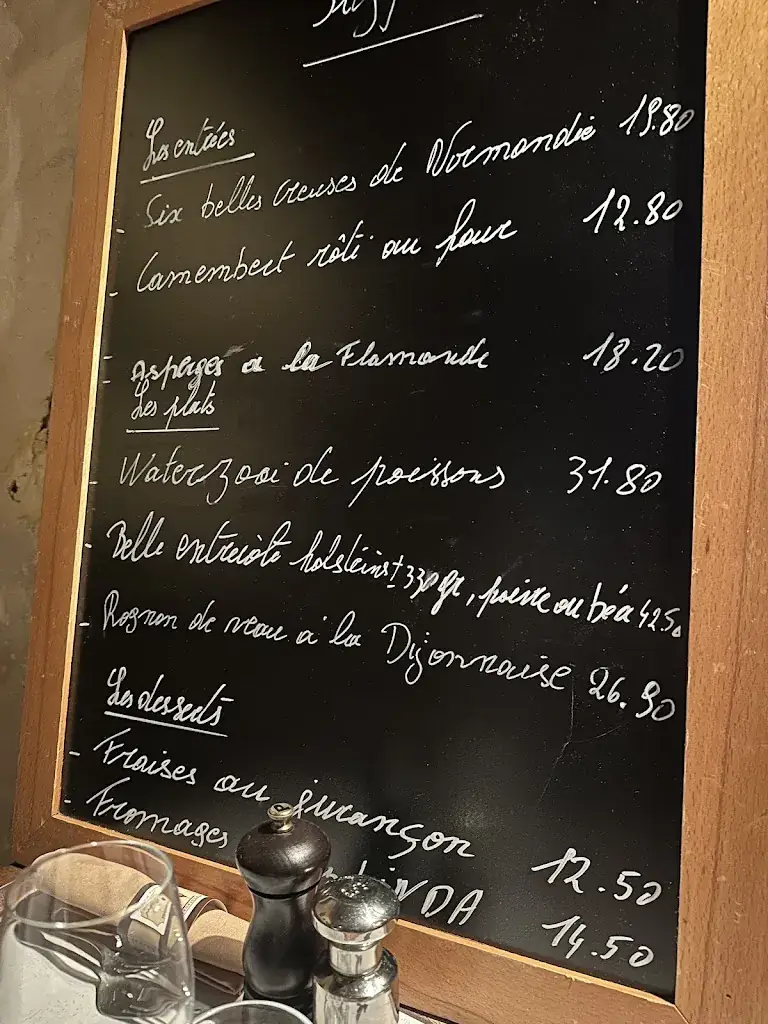 Les entrées
- Six belles creuses de Normandie 19.80
- Camembert rôti au four 12.80
- Asperges à la Flamande 18.20
Les plats
- Waterzooi de poissons 31.80
- Belle entrecôte holstein ± 330gr, poivre ou béa 42.50
- Rognon de veau à la Dijonnaise 26.90
Les desserts
- Fraises au jurançon 12.50
- Fromages LINDA 14.50